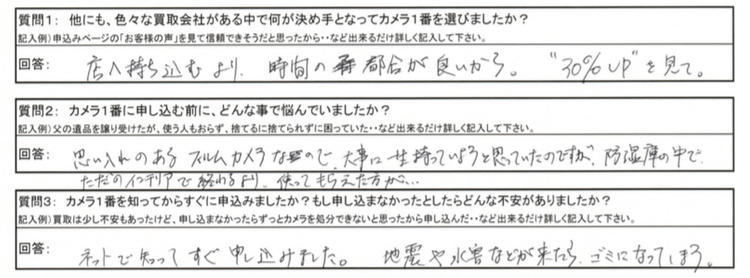 質問1： 他にも、色々な買取会社がある中で何が決め手となってカメラ1番を選びましたか？
記入例）申込みページの「お客様の声」を見て信頼できそうだと思ったから・・など出来るだけ詳しく記入して下さい。
回答： 店へ持ち込むより、時間の都合が良いから。 “30%UP”を見て。
質問2： カメラ1番に申し込む前に、どんな事で悩んでいましたか？
記入例）父の遺品を譲り受けたが、使う人もおらず、捨てるに捨てられずに困っていた・・など出来るだけ詳しく記入して下さい。
回答： 思い入れのあるフィルムカメラなので、大事に一生持っていようと思っていたのですが、防湿庫の中で、
ただのインテリアで終わるより、使ってもらえた方が…
質問3： カメラ1番を知ってからすぐに申込みましたか？もし申し込まなかったとしたらどんな不安がありましたか？
記入例）買取は少し不安もあったけど、申し込まなかったらずっとカメラを処分できないと思ったから申し込んだ・・など出来るだけ詳しく記入して下さい。
回答： ネットで知ってすぐ申し込みました。 地震や水害などが来たら、ゴミになってしまう。